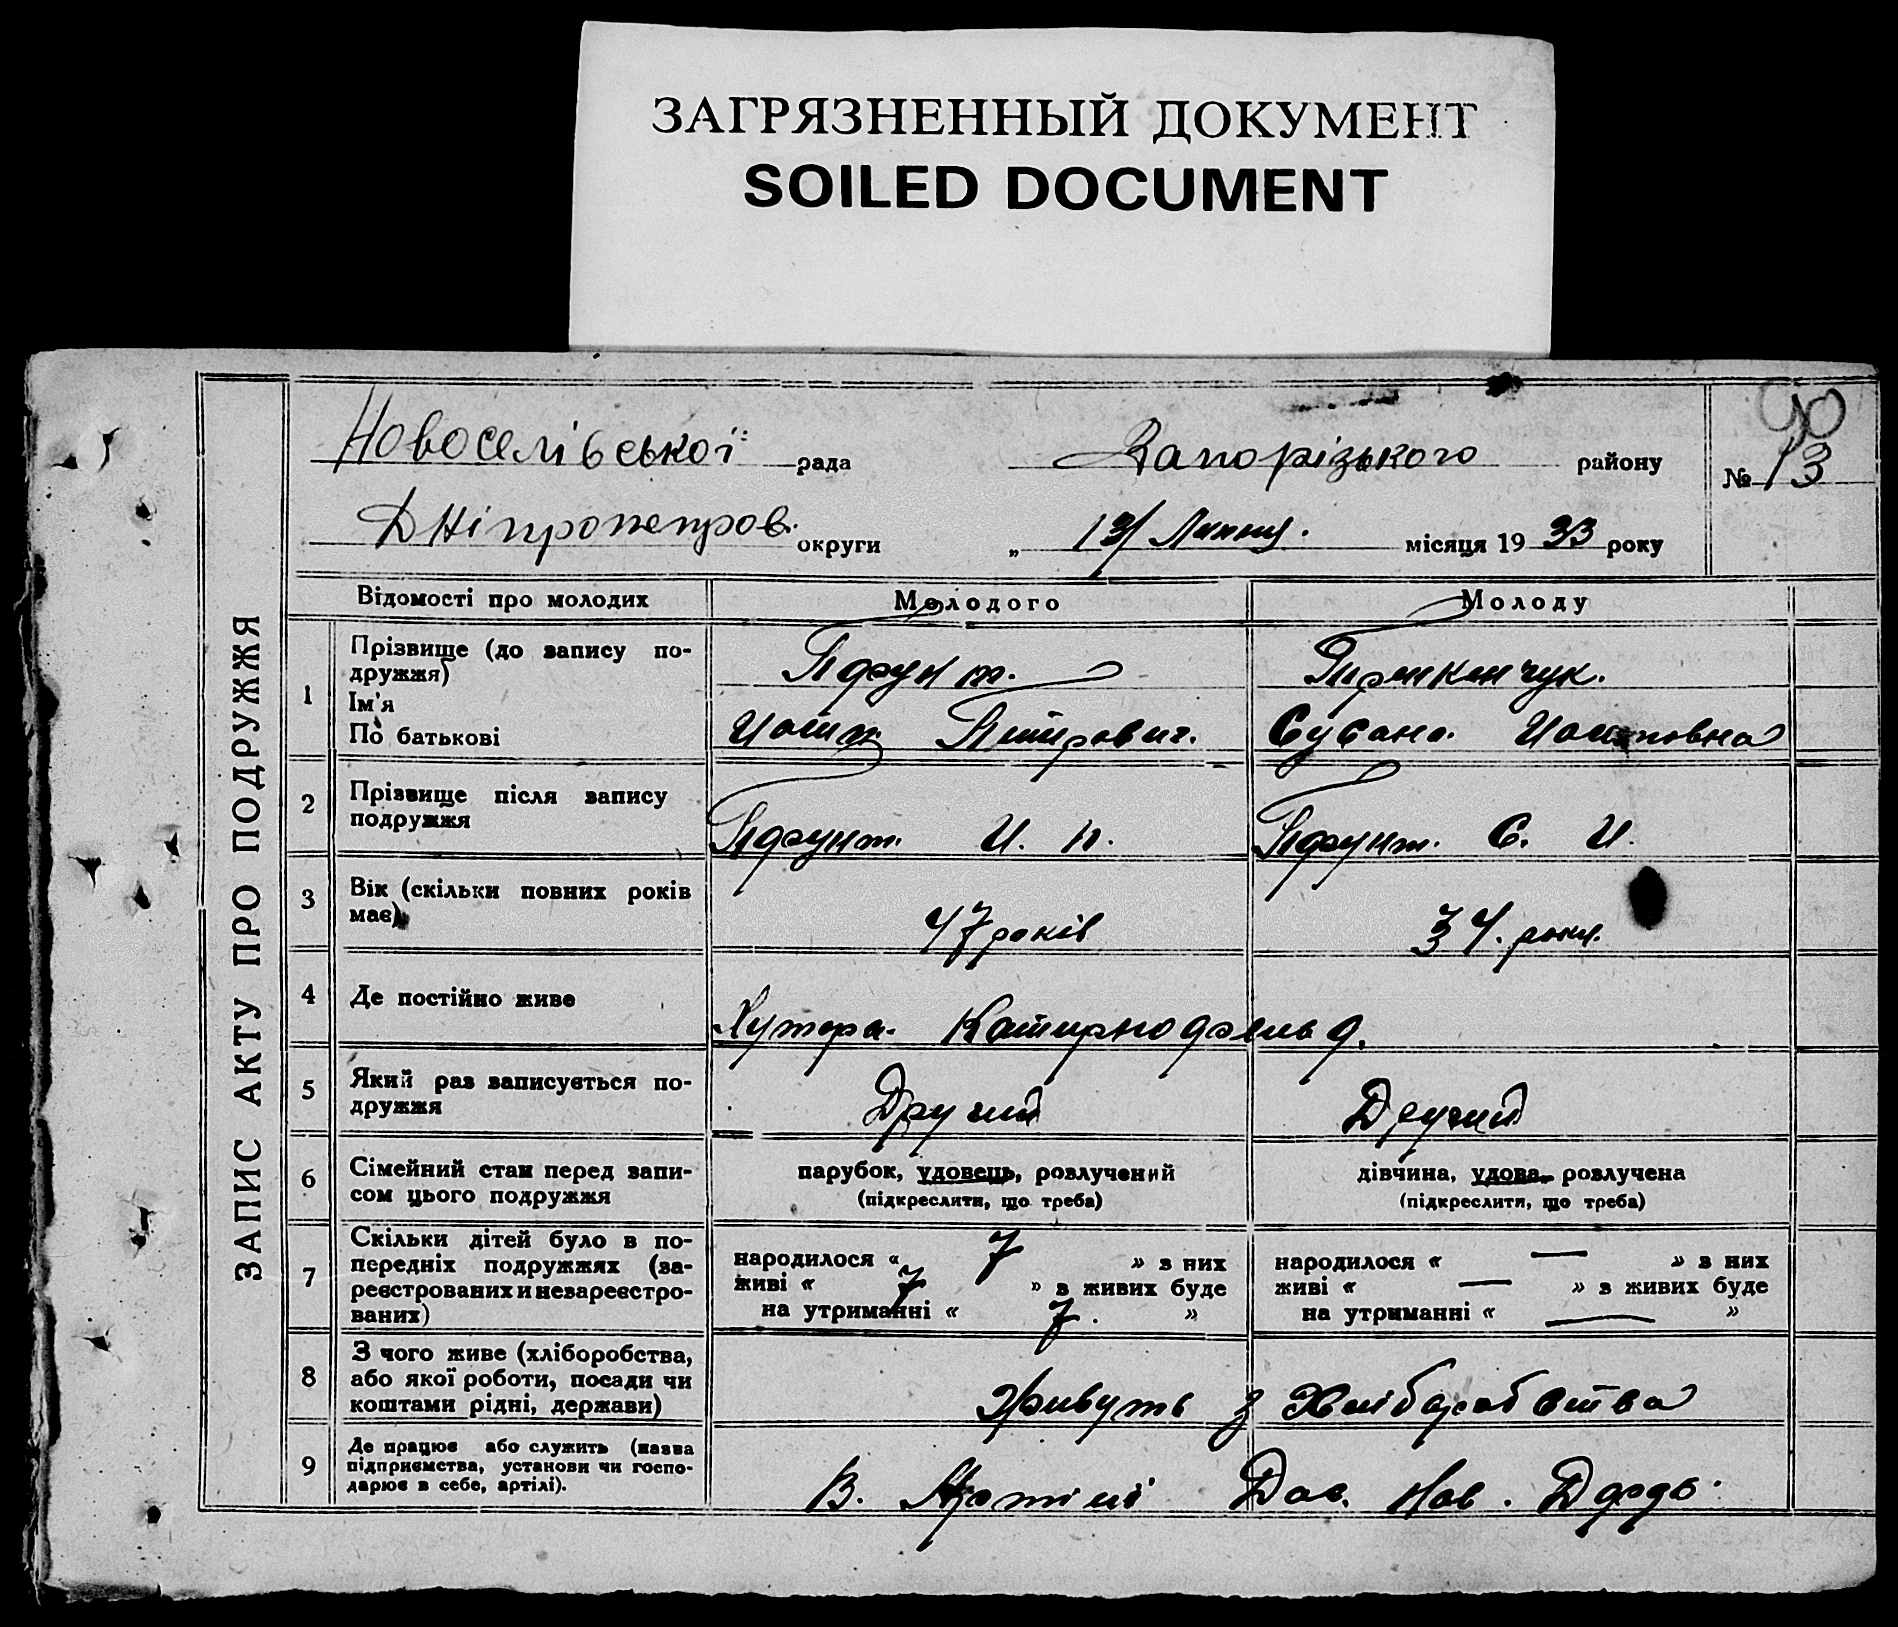 ЗАГРЯЗНЕННЫЙ ДОКУМЕНТ
SOILED DOCUMENT
90
Новоселівської рада Запорізького району № 13
Дніпропетров. округи „ 13/ Липня. місяця 1933 року
ЗАПИС АКТУ ПРО ПОДРУЖЖЯ
Відомості про молодих Молодого Молоду
1 Прізвище (до запису по-
дружжя)
Ім'я
По батькові
Пфунт.
Петрович.
Сусана.
2 Прізвище після запису
подружжя
Пфунт. И. П. Пфунт. С. И.
3 Вік (скільки повних років
має)
47 років 34. роки.
4 Де постійно живе
Хутора.
5 Який раз записується по-
дружжя
Другий Другий
6 Сімейний стан перед запи-
сом цього подружжя
парубок, удовець, розлучений
(підкреслити, що треба)
дівчина, удова, розлучена
(підкреслити, що треба)
7 Скільки дітей було в по-
передніх подружжях (за-
реєстрованих и незареєстро-
ваних)
народилося « 7 » з них
живі « 7 » з живих буде
на утриманні « 7. »
народилося « — » з них
живі « — » з живих буде
на утриманні « — »
8 З чого живе (хліборобства,
або якої роботи, посади чи
коштами рідні, держави)
Живуть з Хліборобства
9 Де працює або служить (назва
підприємства, установи чи госпо-
дарює в себе, артілі).
В. Артілі Нов.